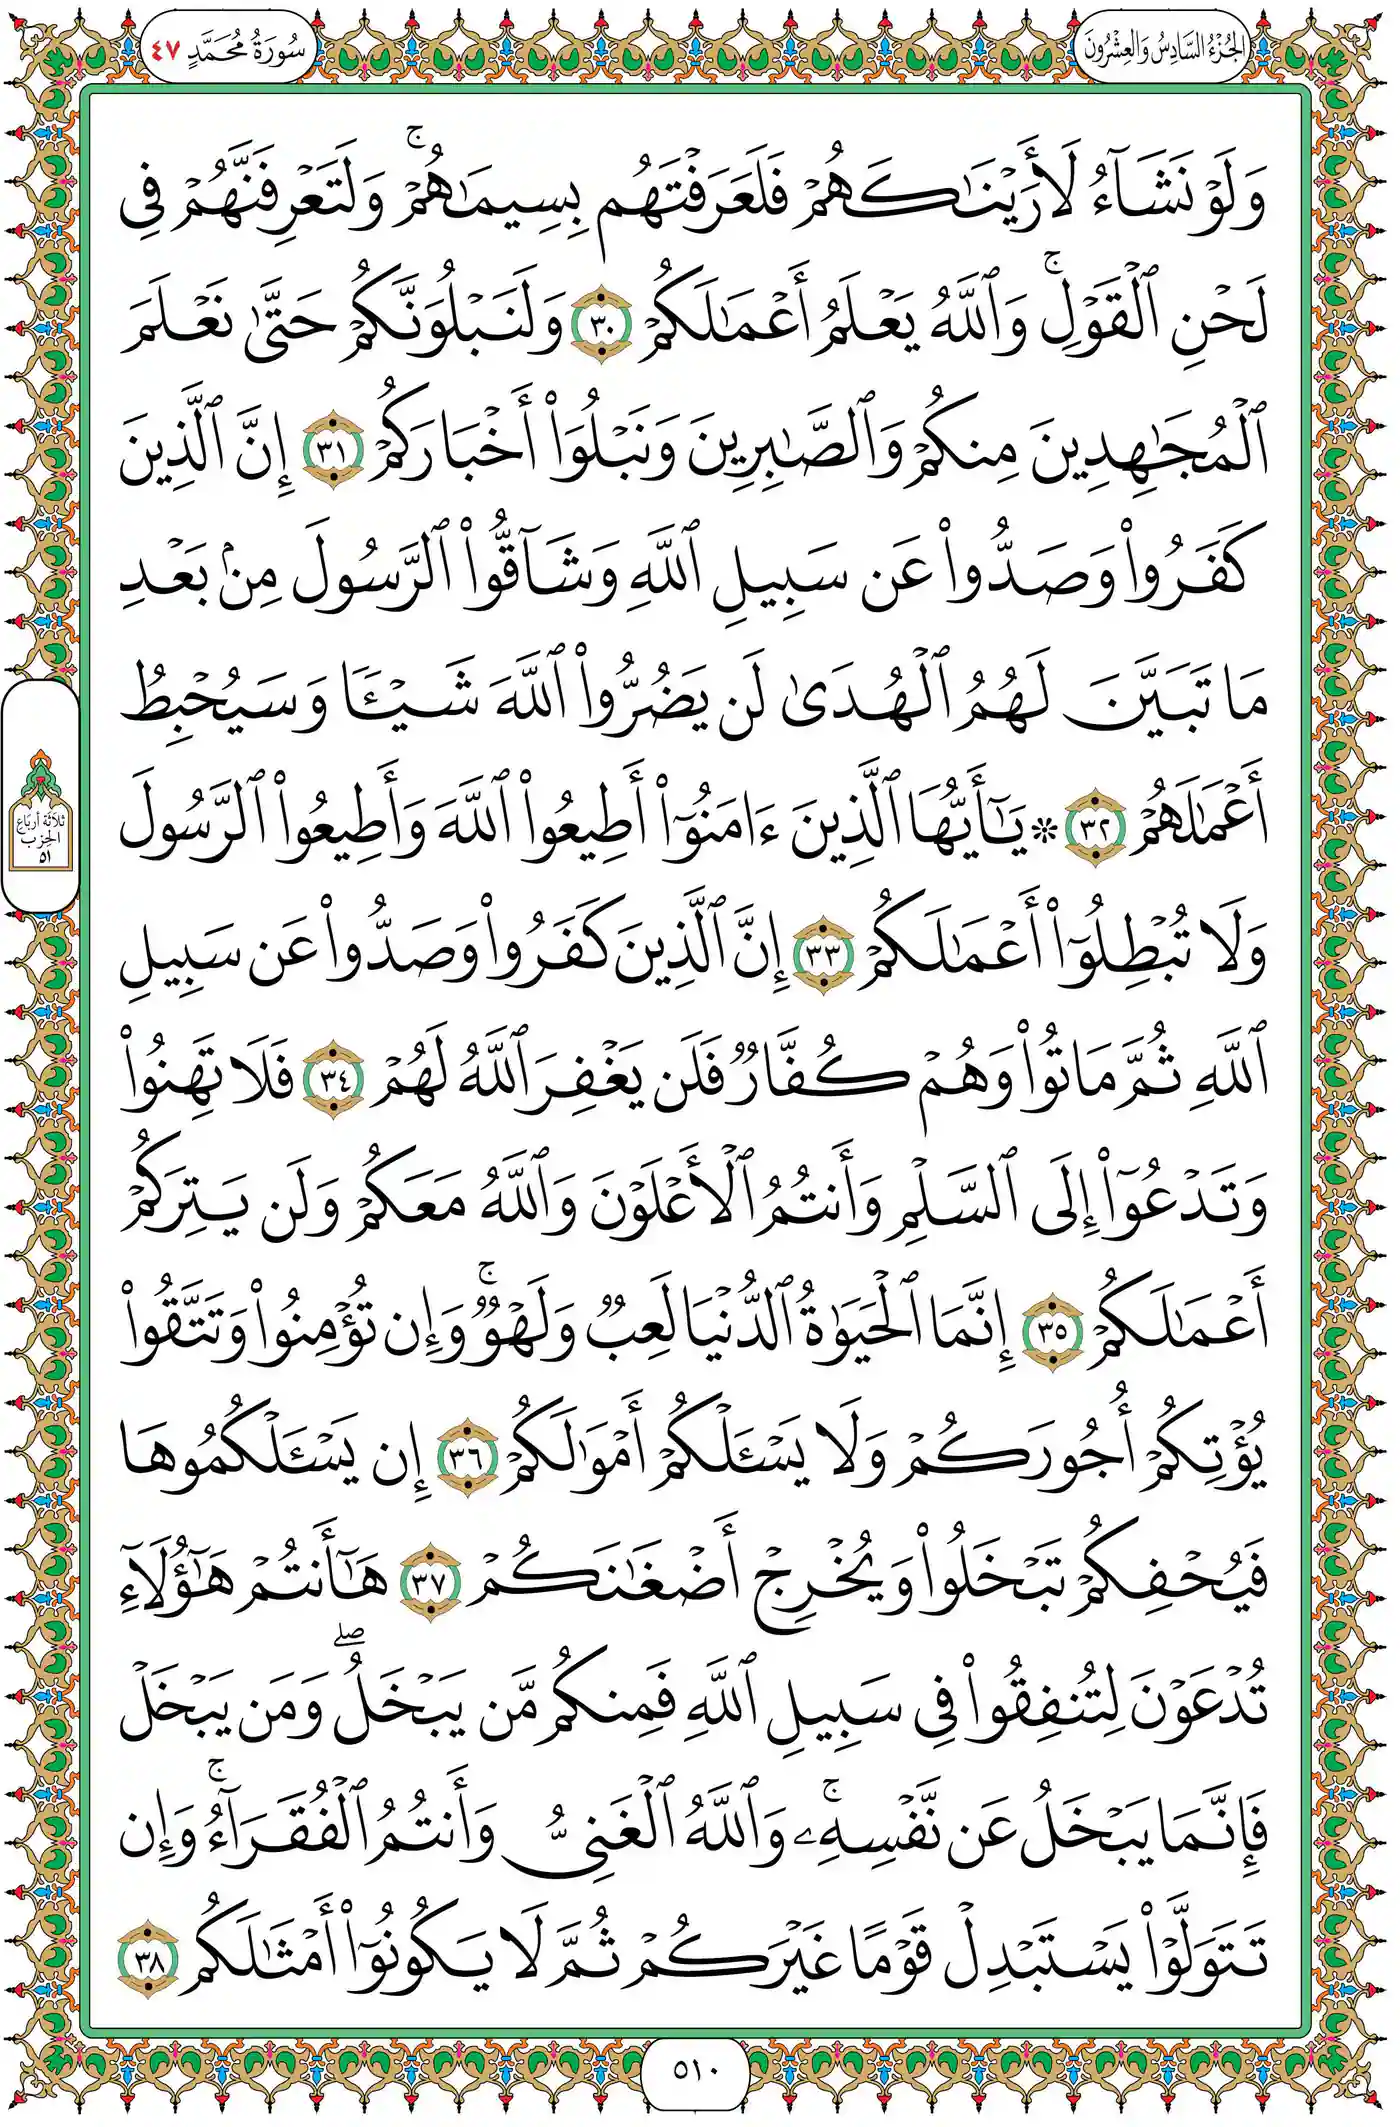 الجُزْءُ السَّادِسُ وَالعِشْرُونَ
سُورَةُ مُحَمَّدٍ ٤٧
وَلَوْ نَشَآءُ لَأَرَيْنَٰكَهُمْ فَلَعَرَفْتَهُم بِسِيمَٰهُمْۚ وَلَتَعْرِفَنَّهُمْ فِى
لَحْنِ ٱلْقَوْلِۚ وَٱللَّهُ يَعْلَمُ أَعْمَٰلَكُمْ ٣٠ وَلَنَبْلُوَنَّكُمْ حَتَّىٰ نَعْلَمَ
ٱلْمُجَٰهِدِينَ مِنكُمْ وَٱلصَّٰبِرِينَ وَنَبْلُوَا۟ أَخْبَارَكُمْ ٣١ إِنَّ ٱلَّذِينَ
كَفَرُوا۟ وَصَدُّوا۟ عَن سَبِيلِ ٱللَّهِ وَشَآقُّوا۟ ٱلرَّسُولَ مِنۢ بَعْدِ
مَا تَبَيَّنَ لَهُمُ ٱلْهُدَىٰ لَن يَضُرُّوا۟ ٱللَّهَ شَيْـًٔا وَسَيُحْبِطُ
أَعْمَٰلَهُمْ ٣٢ ۞ يَٰٓأَيُّهَا ٱلَّذِينَ ءَامَنُوٓا۟ أَطِيعُوا۟ ٱللَّهَ وَأَطِيعُوا۟ ٱلرَّسُولَ
ثَلَاثَة أَربَاع
الحِزب
٥١
وَلَا تُبْطِلُوٓا۟ أَعْمَٰلَكُمْ ٣٣ إِنَّ ٱلَّذِينَ كَفَرُوا۟ وَصَدُّوا۟ عَن سَبِيلِ
ٱللَّهِ ثُمَّ مَاتُوا۟ وَهُمْ كُفَّارٌ فَلَن يَغْفِرَ ٱللَّهُ لَهُمْ ٣٤ فَلَا تَهِنُوا۟
وَتَدْعُوٓا۟ إِلَى ٱلسَّلْمِ وَأَنتُمُ ٱلْأَعْلَوْنَ وَٱللَّهُ مَعَكُمْ وَلَن يَتِرَكُمْ
أَعْمَٰلَكُمْ ٣٥ إِنَّمَا ٱلْحَيَوٰةُ ٱلدُّنْيَا لَعِبٌ وَلَهْوٌۚ وَإِن تُؤْمِنُوا۟ وَتَتَّقُوا۟
يُؤْتِكُمْ أُجُورَكُمْ وَلَا يَسْـَٔلْكُمْ أَمْوَٰلَكُمْ ٣٦ إِن يَسْـَٔلْكُمُوهَا
فَيُحْفِكُمْ تَبْخَلُوا۟ وَيُخْرِجْ أَضْغَٰنَكُمْ ٣٧ هَٰٓأَنتُمْ هَٰٓؤُلَآءِ
تُدْعَوْنَ لِتُنفِقُوا۟ فِى سَبِيلِ ٱللَّهِ فَمِنكُم مَّن يَبْخَلُۖ وَمَن يَبْخَلْ
فَإِنَّمَا يَبْخَلُ عَن نَّفْسِهِۦۚ وَٱللَّهُ ٱلْغَنِىُّ وَأَنتُمُ ٱلْفُقَرَآءُۚ وَإِن
تَتَوَلَّوْا۟ يَسْتَبْدِلْ قَوْمًا غَيْرَكُمْ ثُمَّ لَا يَكُونُوٓا۟ أَمْثَٰلَكُم ٣٨
٥١٠